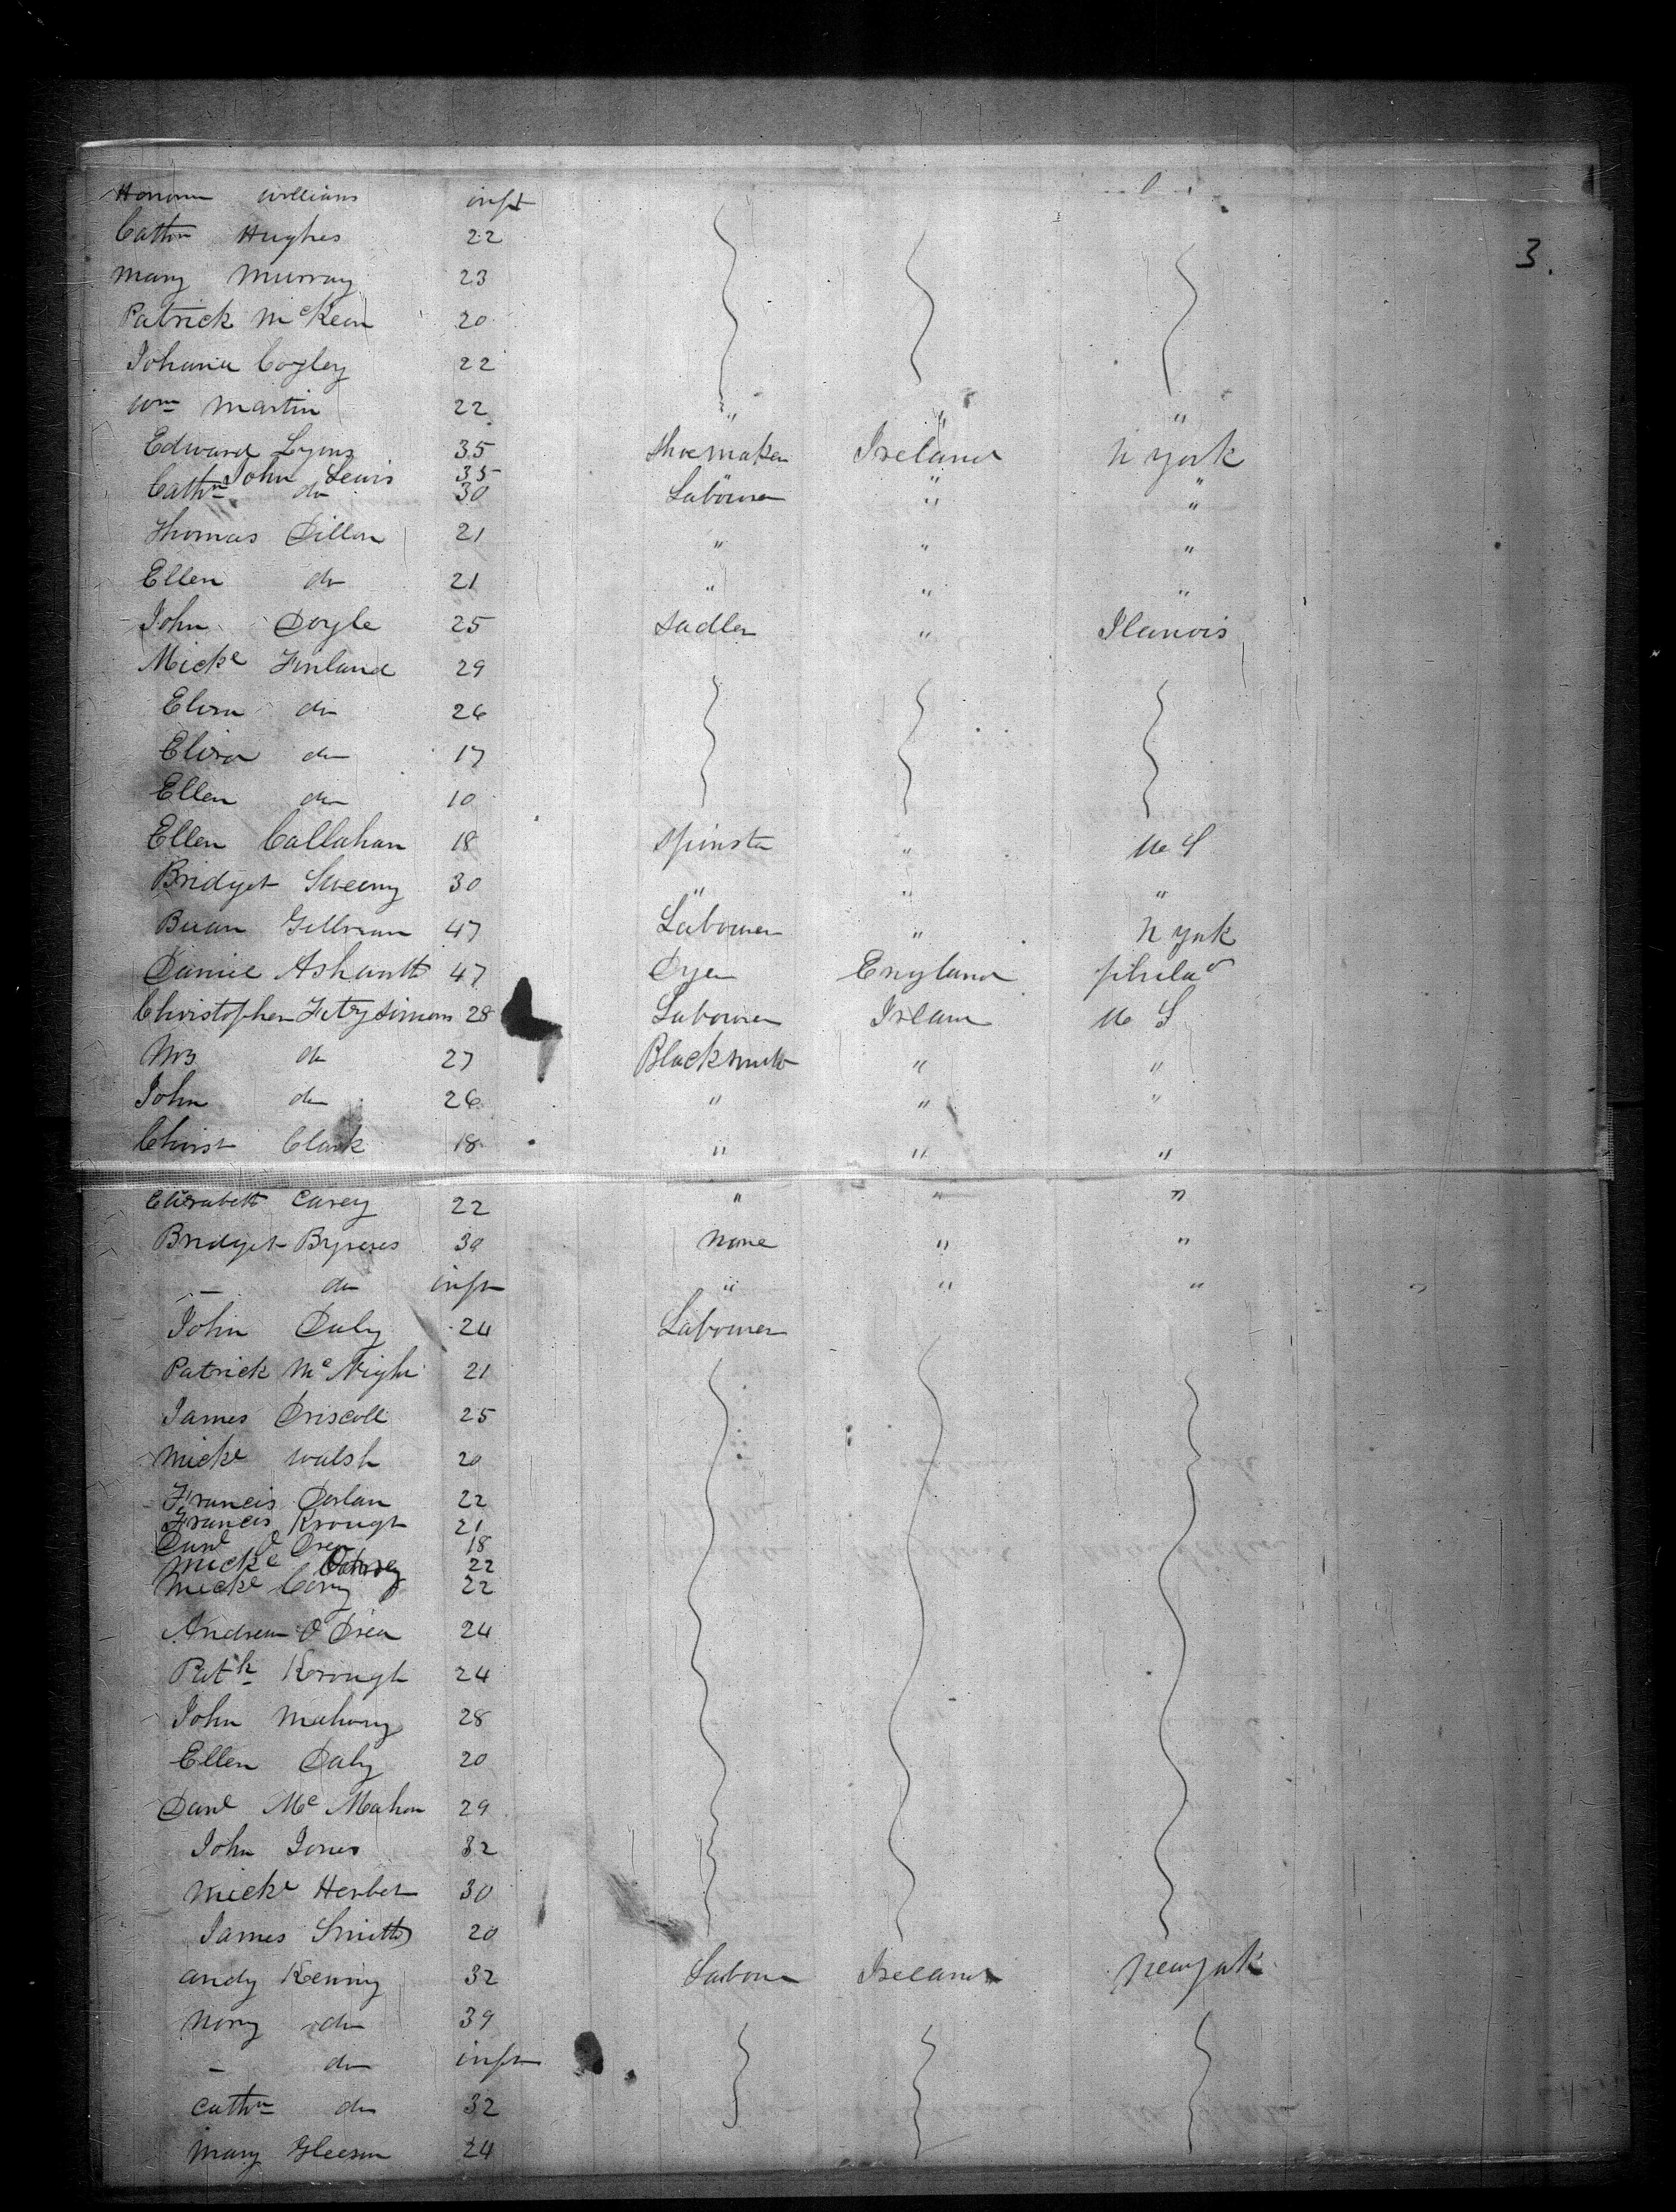 3.
Honour Williams inft
Cathn Hughes 22
Mary Murray 23
Patrick McKeon 20
Johana Cogley 22
Wm Martin 22 " " "
Edward Lyons 35 Shoemaker Ireland N york
John Lewis 35 " " "
Cathn do 30 Labourer " "
Thomas Dillon 21 " " "
Ellen do 21 " " "
John Doyle 25 Sadler " Ilanois
Micke Finland 29
Eliza do 26
Eliza do 17
Ellen do 10
Ellen Callahan 18 Spinster " U S
Bridget Sweeny 30 " " "
Brian 47 Labourer " N york
Daniel Ashworth 47 Dyer England phila
Christopher Fitzsimons 28 Labourer Irland U S
Mrs do 27 Blacksmith " "
John do 26 " " "
Christ Clark 18 " " "
Elizabeth Carey 22 " " "
Bridget Byrnes 30 None " "
— do inft " " "
John Daly 24 Labourer
Patrick Mc Nigh 21
James Driscoll 25
Micke Walsh 20
Francis Dorlan 22
Francis Krough 21
Danl O Drea 18
Micke 22
Micke Cony 22
Andrew O Drea 24
Patk Krough 24
John Mahony 28
Ellen Daly 20
Danl Mc Mahon 29
John Jones 32
Micke Herbet 30
James Smith 20
Andy Kenny 32 Labour Ireland Newyork
Nory do 39
— do inft
Cathn do 32
Mary Gleeson 24